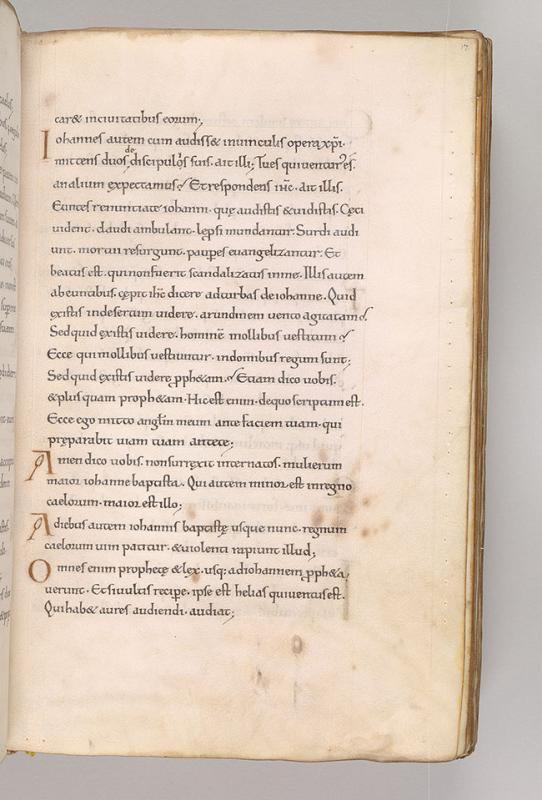 17
car& inciuitatibus eorum;
Iohannes autem cum audiss& inuinculis opera xp̄i.
de
mittens duos discipulos suis. ait illi; Tu es qui uenturꝰ es.
an alium expectamus? Et respondens ihc̄. ait illis.
Euntes renuntiate iohanni. quę audistis & uidistis. Cęci
uident. claudi ambulant. lepsi mundantur. Surdi audi
unt. mortui resurgunt. paupes euangelizantur. Et
beatus est. qui nonfuerit scandalizatus inme. Illis autem
abeuntibus. cępit ihc̄ dicere adturbas de iohanne. Quid
existis indesertum uidere. arundinem uento agitatam?
Sed quid existis uidere. hominē mollibus uestitum?
Ecce qui mollibus uestiuntur. indomibus regum sunt;
Sed quid existis uidere pph&am? Etiam dico uobis.
& plus quam proph&am. Hic est enim. dequo scriptum est.
Ecce ego mitto anglm̄ meum. ante faciem tuam. qui
pręparabit uiam tuam ante te;
Amen dico uobis. nonsurrexit internatos. mulierum
maior iohanne baptista. Qui autem minor est inregno
caelorum. maior est illo;
Adiebus autem iohannis baptistę usque nunc. regnum
caelorum uim patitur. & uiolenti rapiunt illud;
Omnes enim prophetę & lex. usq; adiohannem pph&a
uerunt. Et siuultis recipe. ipse est helias qui uenturus est.
Qui hab& aures audiendi. audiat;